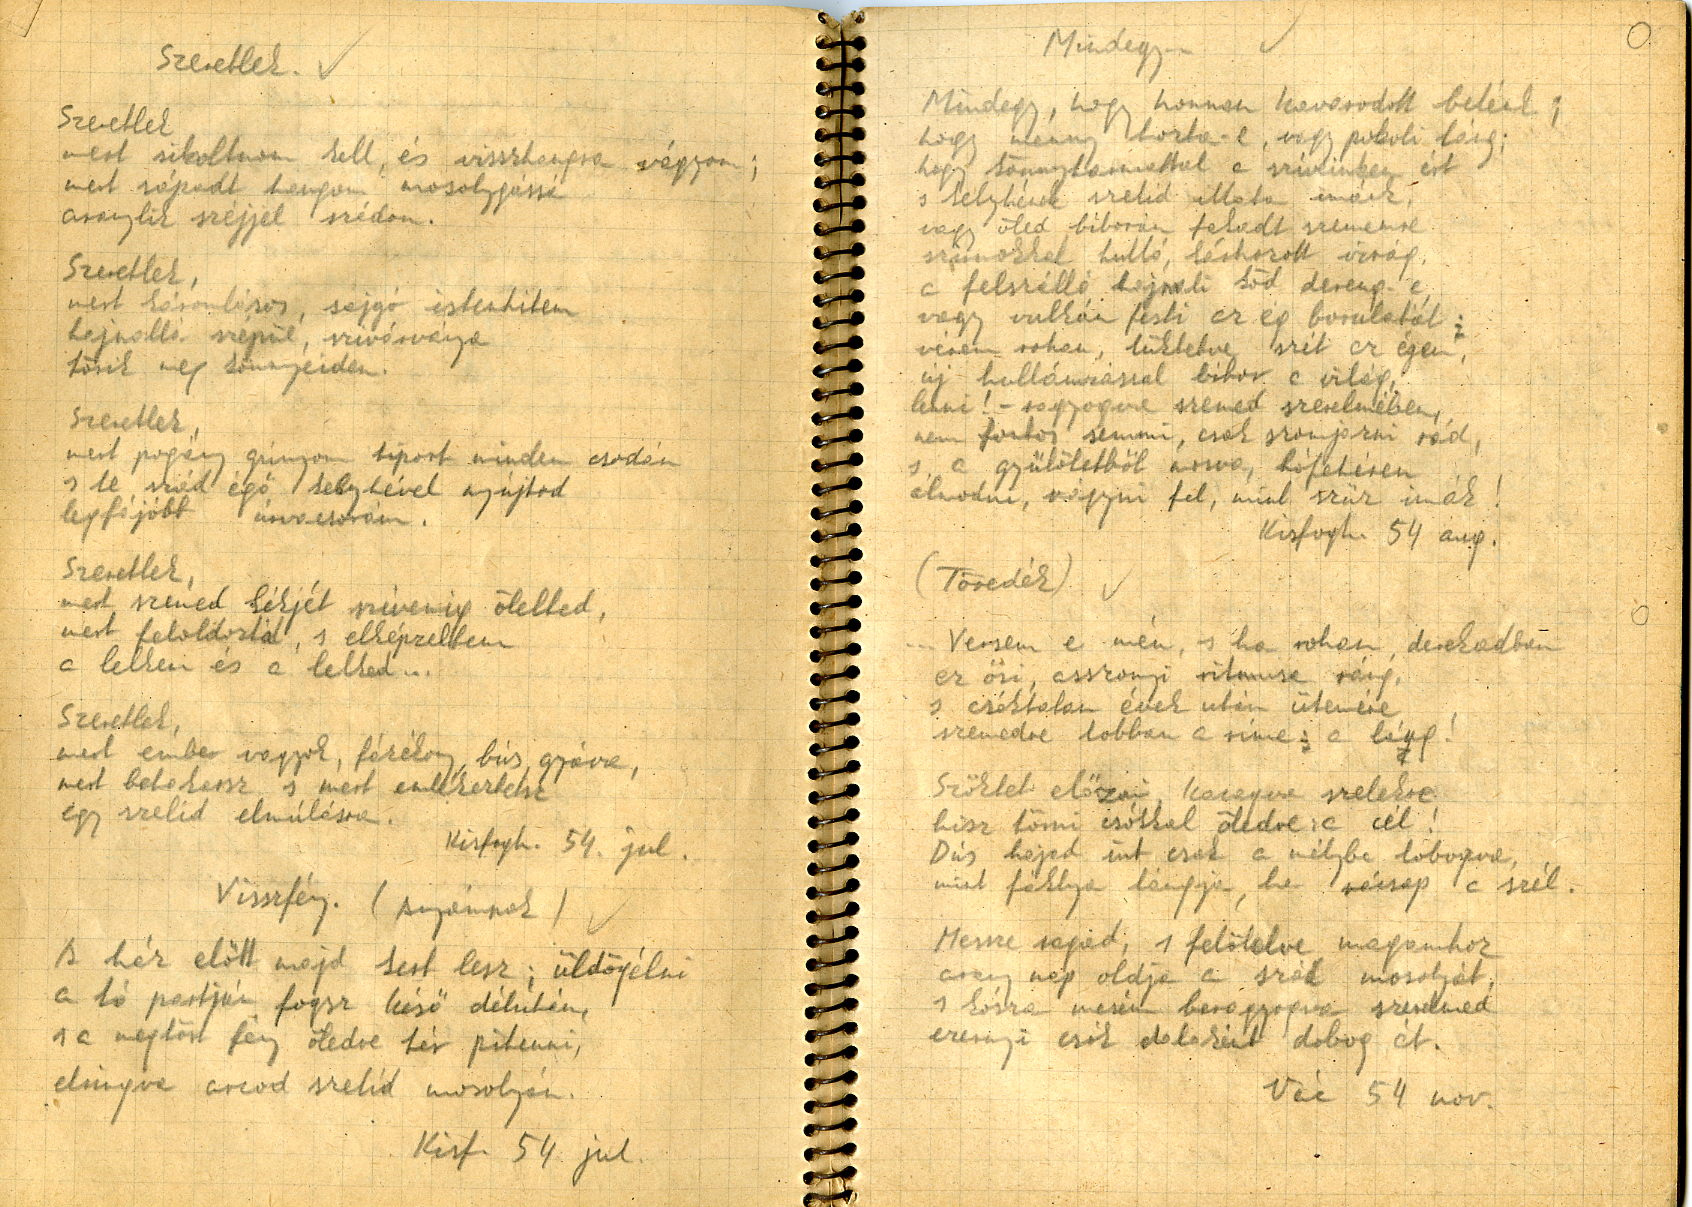 Szeretlek.
Szeretlek
mert sikoltnom kell, és visszhangra vágyom;
mert sápadt hangom mosolygássá
aranylik széjjel szádon.
Szeretlek,
mert káromlásos, sajgó istenhitem
hajnallá szépül, szivárványa
törik meg könnyeiden.
Szeretlek,
mert pogány gúnyom tiport minden csodán
s te szád égő kelyhével nyújtod
legfájóbb úrvacsorám.
Szeretlek,
mert szemed kékjét szívemig ölelted,
mert feloldoztál, s elképzeltem
a lelkem és a lelked...
Szeretlek,
mert ember vagyok, fázékony, bús, gyáva,
mert betakarsz s mert emlékeztetsz
egy szelíd elmúlásra.
Kisfogh. 54. jul.
Visszfény. (Anyámnak)
A ház előtt majd kert lesz; üldögélni
a tó partján fogsz késő délután,
s a megtört fény öledre tér pihenni,
elringva arcod szelíd mosolyán.
Kisf. 54 jul.
Mindegy..
Mindegy, hogy honnan kavarodott belénk;
hogy menny hozta-e, vagy pokoli láng;
hogy könnyharmattal a szíveinken ért
s kelyhének szelíd illata imánk,
vagy öled biborán fakadt szememre
szirmokkal hulló, kárhozott virág,
a felszálló hajnali köd dereng-e
vagy vulkán festi az ég borulatát;
vérem rohan, lüktetve szét az égen,
új hullámzással bibor a világ,
lenni! - ragyogva szemed szerelmében,
nem fontos semmi, csak szomjazni rád,
s a gyűlöletből mosva, hófehéren
álmodni, vágyni fel, mint szűz imák!
Kisfogh. 54 aug.
(Töredék)
... Versem e mén, s ha rohan, derekadban
az ősi, asszonyi ritmusa ráng,
s csóktalan évek után ütemére
szemedre lobban a rime: a láng!
Szöktet előzni, kacagva szelekre
hisz törni csókkal öledre: a cél!
Dús hajad int csak a mélybe lobogva,
mint fáklya lángja, ha rácsap a szél.
Messze ragad, s felölelve magamhoz
arany nap oldja a szád mosolyát,
s kósza mesém beragyogva szerelmed
ezernyi csók dalaként dobog át.
Vác 54 nov.